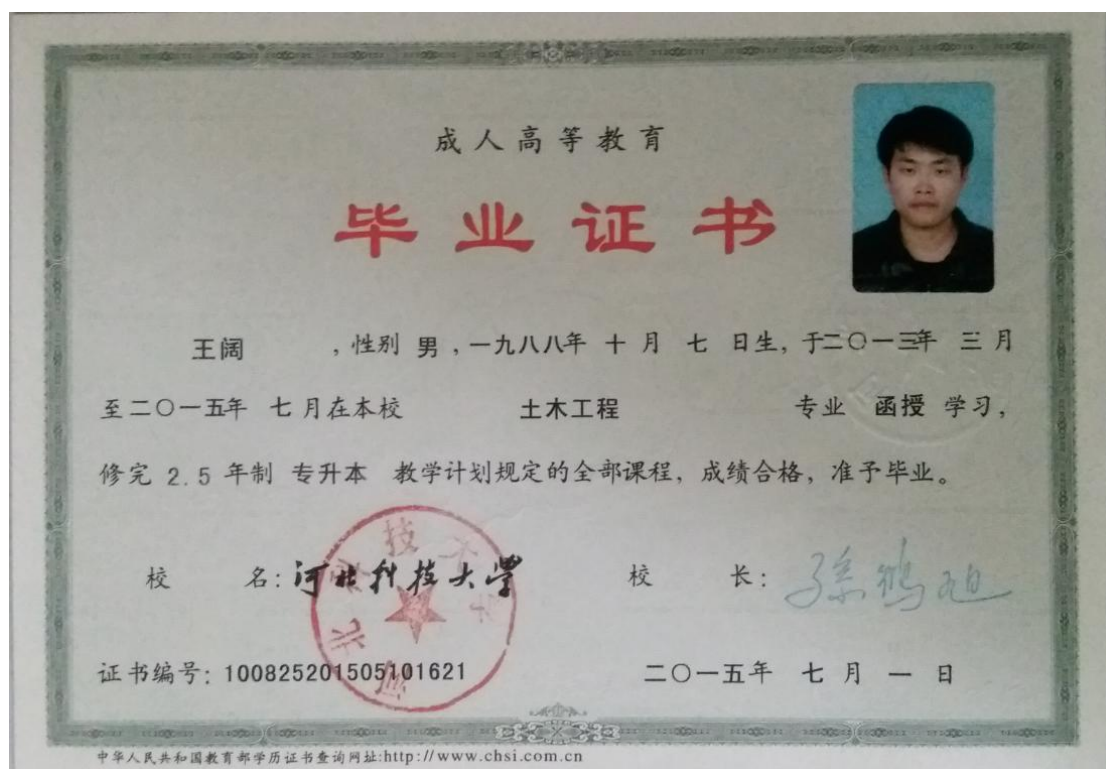 成人高等教育
毕业证书
王阔 ，性别 男 ，一九八八年 十 月 七 日生，于二〇一三年 三 月
至二〇一五年 七 月在本校 土木工程 专业 函授 学习，
修完 2.5 年制 专升本 教学计划规定的全部课程，成绩合格，准予毕业。
校 名：河北科技大學 校 长：孙鹤旭
证书编号：100825201505101621 二〇一五年 七 月 一 日
中华人民共和国教育部学历证书查询网址:http://www.chsi.com.cn